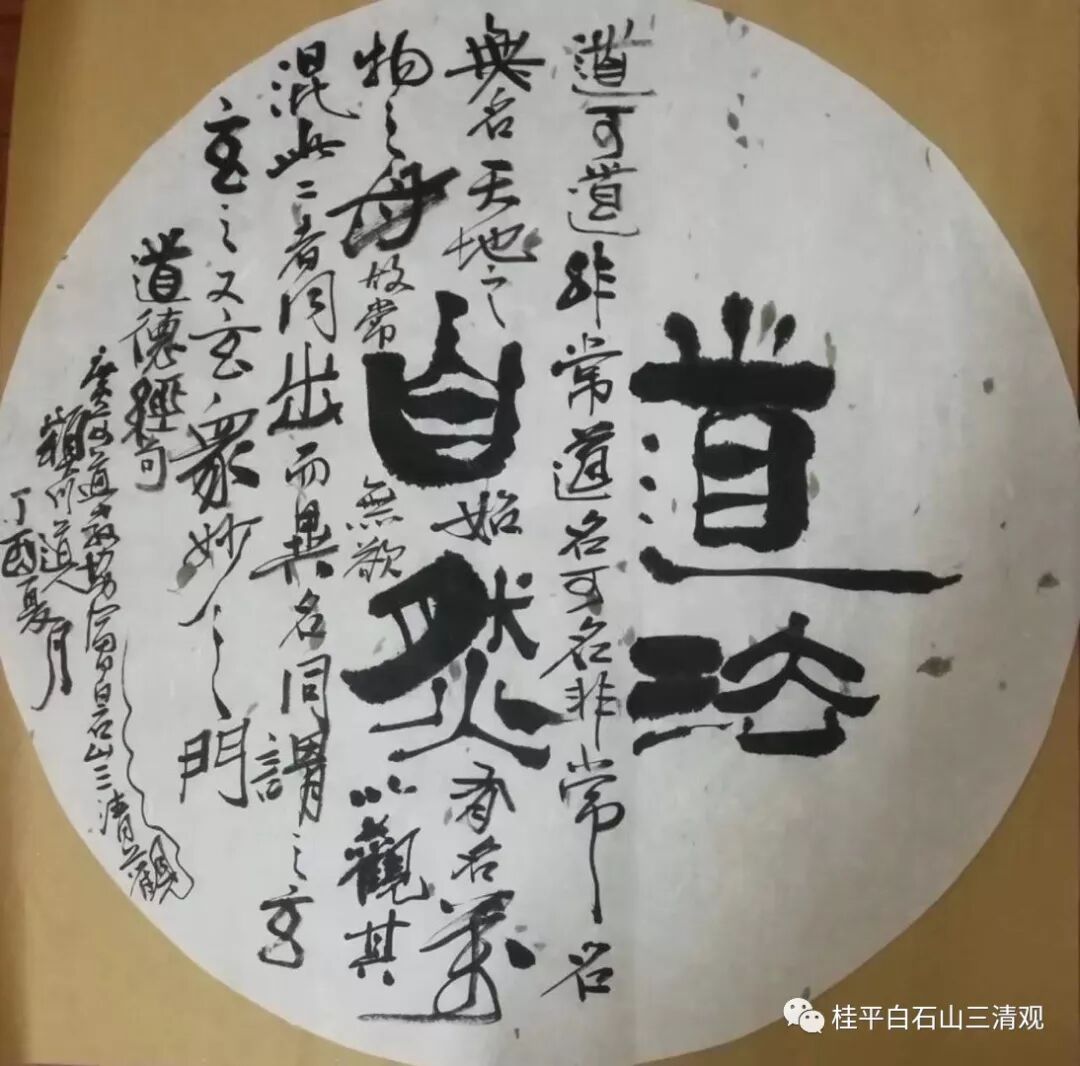 道法
自然
道可道非常道名可名非常名
無名天地之始有名萬
物之母故常無欲以觀其
混此二者同出而異名同謂之玄
玄之又玄衆妙之門
道德經句
廣西道教白石山三清觀
穎川道人
丁酉夏月
桂平白石山三清观